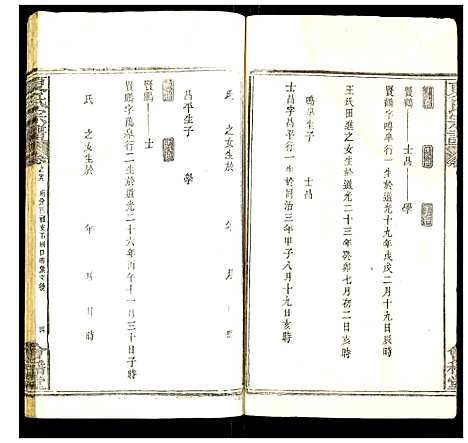 賢鶴 士昌 學
賢鶴字鳴皋行一生於道光十九年戊戌二月十九日辰時
王氏田進之女生於道光二十三年癸卯七月初二日亥時
鳴皋生子 士昌
士昌字昌平行一生於同治三年甲子八月十九日亥時
氏 之女生於 年 月 日 時
昌平生子 學
賢鵬 士
賢鵬字萬皋行二生於道光二十六年丙午十一月三十日子時
氏 之女生於 年 月 日 時
夏氏宗譜
卷
會稽堂